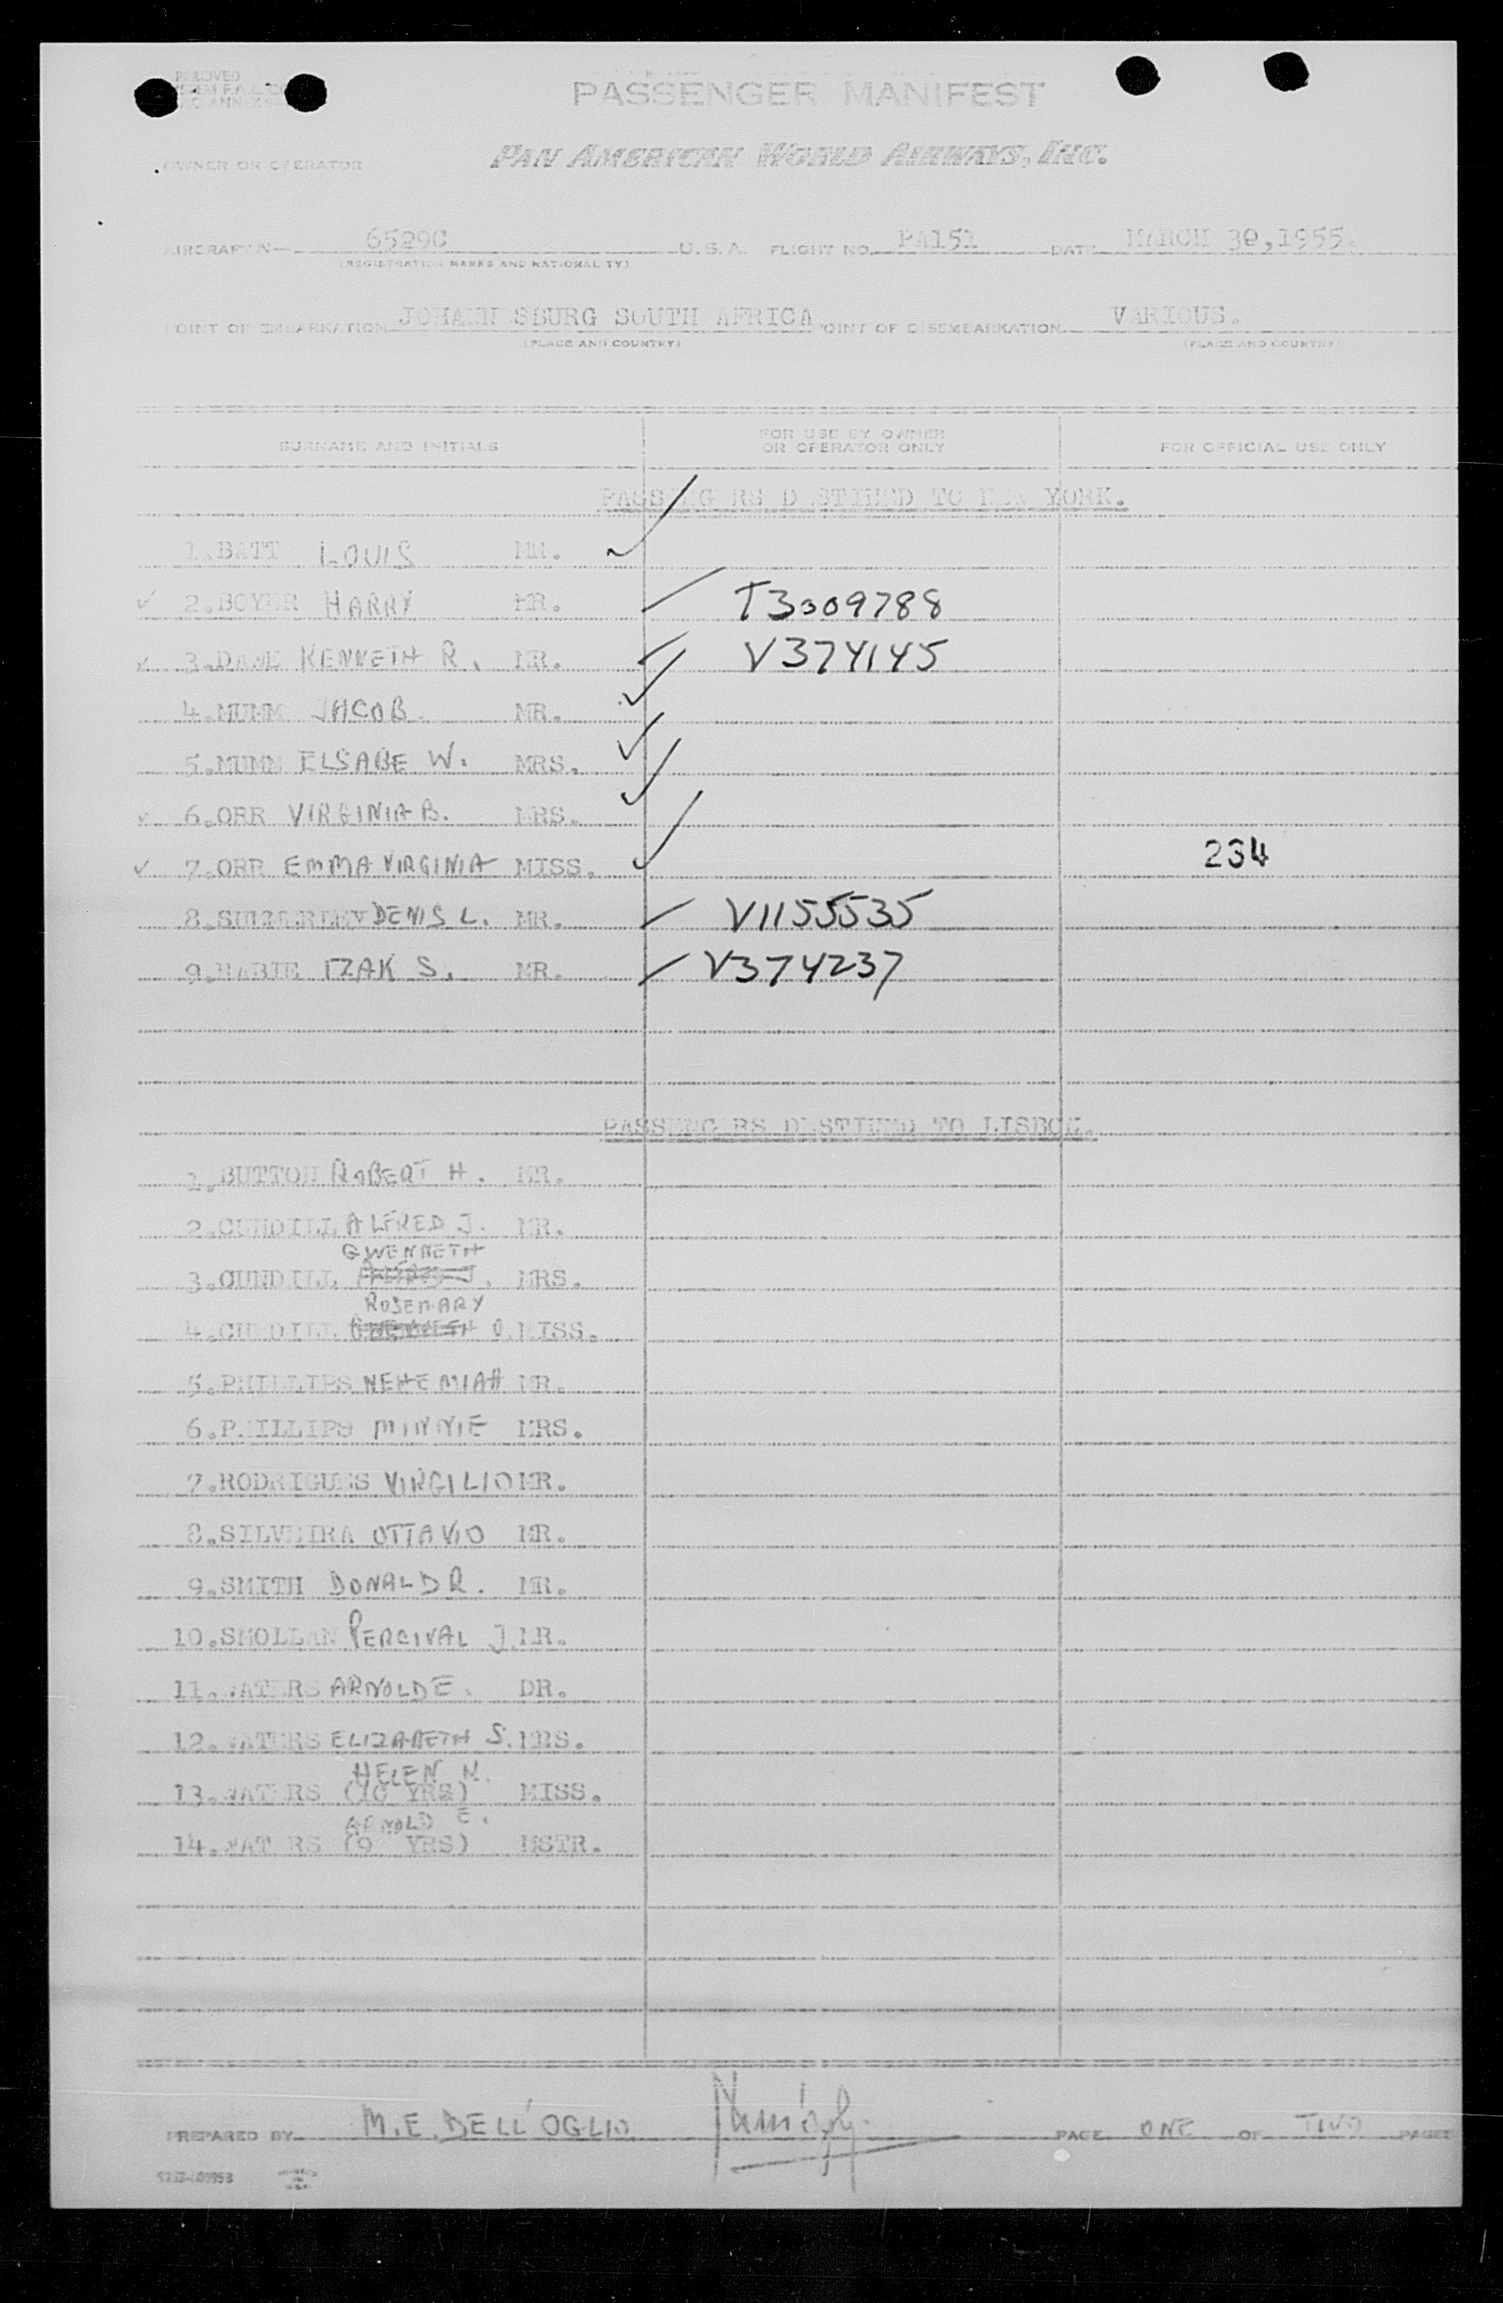 PASSENGER MANIFEST
OWNER OR OPERATOR PAN AMERICAN WORLD AIRWAYS, INC.
AIRCRAFT N— 6529C U.S.A. FLIGHT NO. PA151 DATE MARCH 30, 1955.
(REGISTRATION MARKS AND NATIONALITY)
POINT OF EMBARKATION JOHANNESBURG SOUTH AFRICA POINT OF DISEMBARKATION VARIOUS.
(PLACE AND COUNTRY) (PLACE AND COUNTRY)
SURNAME AND INITIALS FOR USE BY OWNER OR OPERATOR ONLY FOR OFFICIAL USE ONLY
PASSENGERS DESTINED TO NEW YORK.
1. BATT LOUIS MR. ✓
✓ 2. BOYER HARRY MR. T3009788
✓ 3. DANE KENNETH R. MR. ✓ V374145
4. MUMM JACOB. MR. ✓
5. MUMM ELSABE W. MRS. ✓
✓ 6. ORR VIRGINIA B. MRS. ✓
✓ 7. ORR EMMA VIRGINIA MISS. ✓ 234
8. DENIS L. MR. V1155535
9. IZAK S. MR. V374237
PASSENGERS DESTINED TO LISBON.
1. BUTTON ROBERT H. MR.
2. CUNDILL ALFRED J. MR.
GWENNETH
3. CUNDILL ALFRED J. MRS.
ROSEMARY
4. CUNDILL GWENNETH O. MISS.
5. PHILLIPS NEHEMIAH MR.
6. PHILLIPS MINNIE MRS.
7. RODRIGUES VIRGILIO MR.
8. SILVEIRA OTTAVIO MR.
9. SMITH DONALD R. MR.
10. SMOLLAN PERCIVAL J. MR.
11. WATERS ARNOLD E. DR.
12. WATERS ELIZABETH S. MRS.
HELEN M.
13. WATERS (10 YRS) MISS.
ARNOLD E.
14. WATERS (9 YRS) MSTR.
PREPARED BY M.E. DELL'OGLIO PAGE ONE OF TWO PAGES